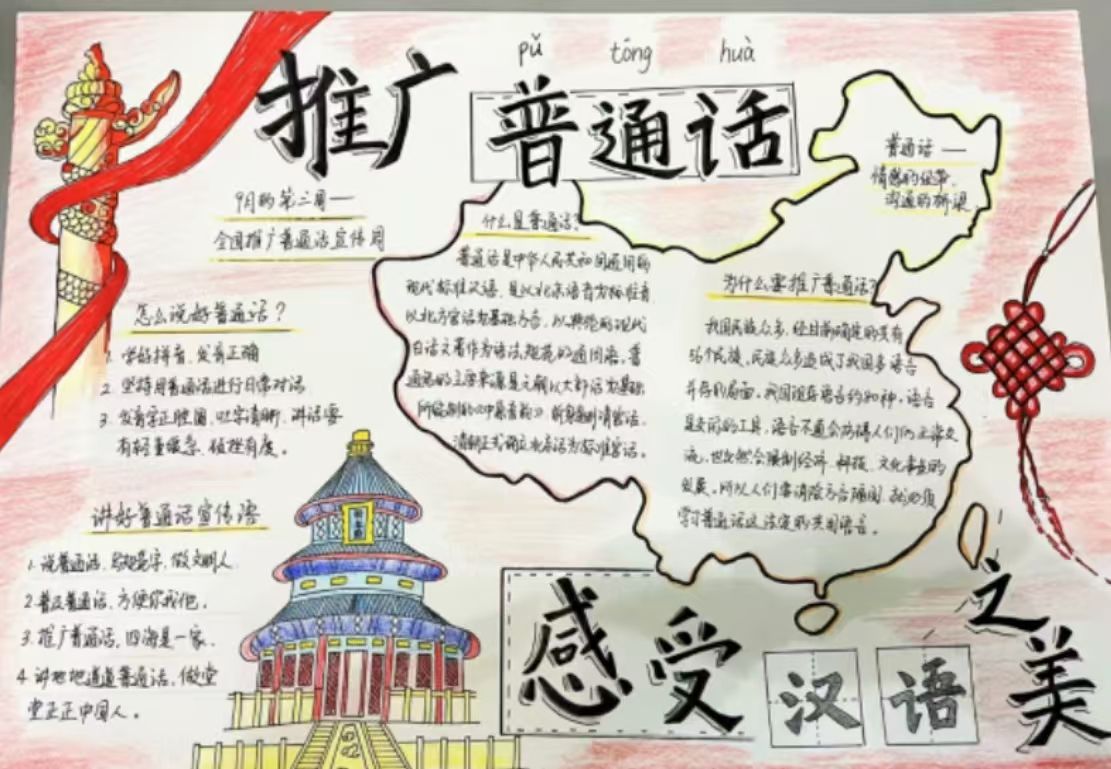 pǔ tōng huà
推广普通话
9月的第三周一
全国推广普通话宣传周
怎么说好普通话?
1. 学好拼音、发音正确
2. 坚持用普通话进行日常对话
3. 发音字正腔圆、吐字清晰、讲话要
有轻重缓急、
有度。
讲好普通话宣传语
1. 说普通话、写规范字、做文明人
2 普及普通话、方便你我他。
3. 推广普通话,四海是一家。
4. 讲地地道道普通话,做堂
堂正正中国人。
什么是普通话?
普通话是中华人民共和国通用的
现代标准汉语,是以北京语音为标准音
以北方官话为基础方言,以典范的现代
白话文著作为语法规范的通用语。普
通话的主要来源是元朝以大都话为基础
所编制的《中原音韵》
明清官话,
清朝正式确立北京话为标准官话。
普通话一
情感的纽带、
沟通的桥梁
为什么要推广普通话?
我国民族众多,经目前确定的共有
56个民族,民族众多造成了我国多语言
并存的局面。我国现存语言约80种。语言
是交问的工具,语言不通会妨碍人们的正常交
流,也必然会限制经济、科技、文化事业的
发展。所以人们要消除方言隔阂,就必须
学习普通话这法定的共同语言。
感受汉语之美